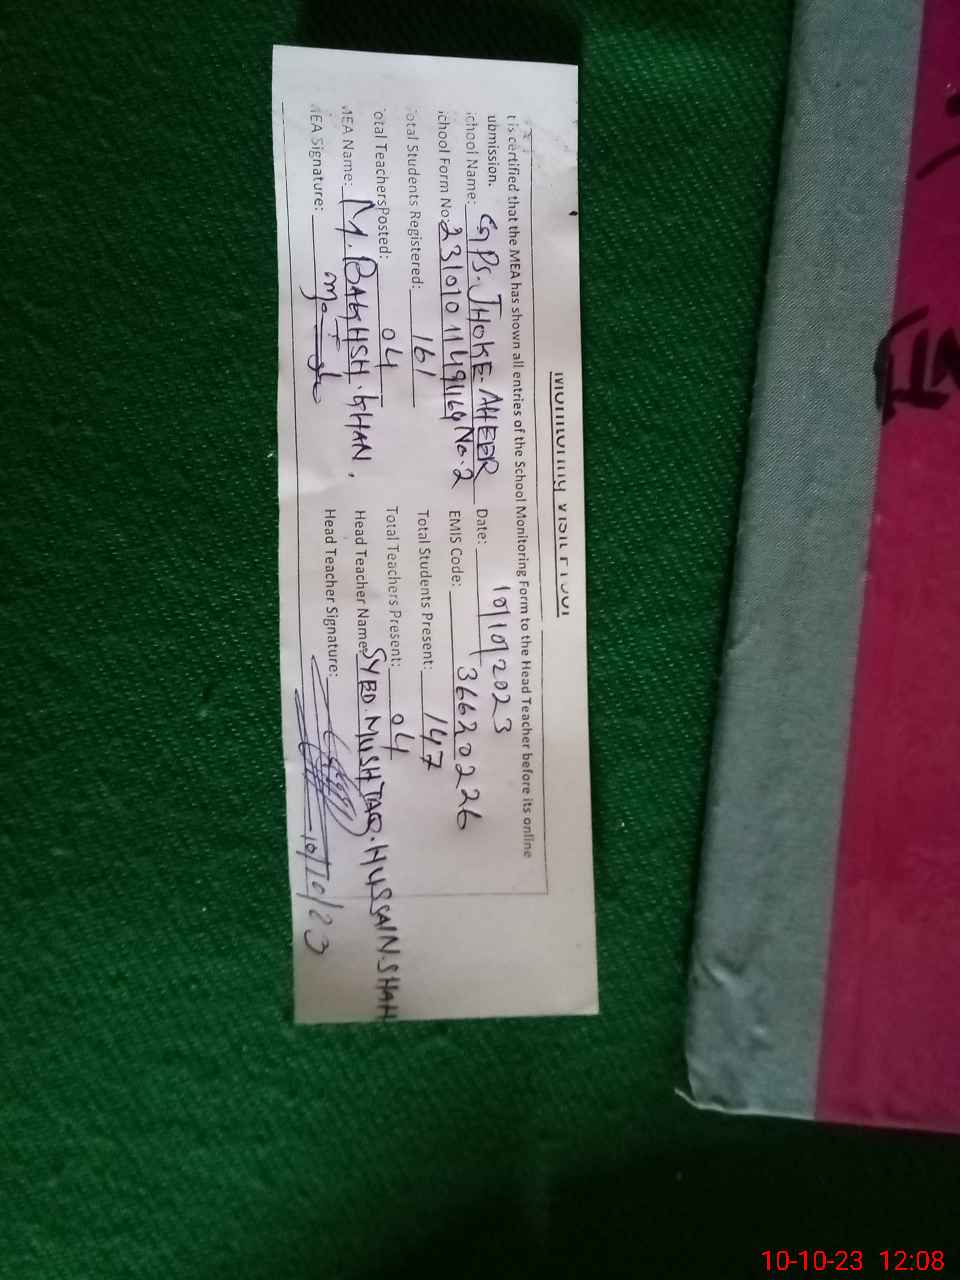 Monitoring Visit Proof
t is certified that the MEA has shown all entries of the School Monitoring Form to the Head Teacher before its online
ubmission.
chool Name: GPS. JHOKE. AHEER No. 2 Date: 10/10/2023
chool Form No: EMIS Code: 36620226
otal Students Registered: 161 Total Students Present: 147
otal TeachersPosted: 04 Total Teachers Present: 04
MEA Name: M. BAKHSH. KHAN. Head Teacher Name: SYED. MUSHTAQ. HUSSAIN. SHAH
MEA Signature: Head Teacher Signature: 10/10/23
10-10-23 12:08